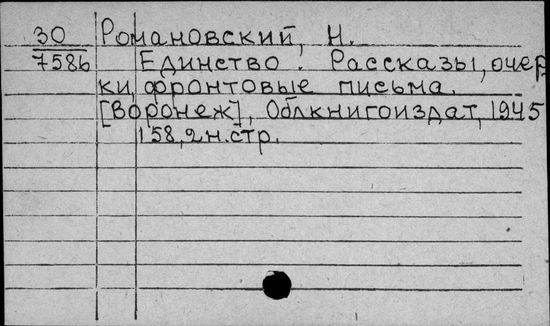 30 Романовский, Н.
7586 Единство. Рассказы, очер
ки, фронтовые письма.
[Воронеж], Облкнигоиздат, 1945
158, 2 н. стр.